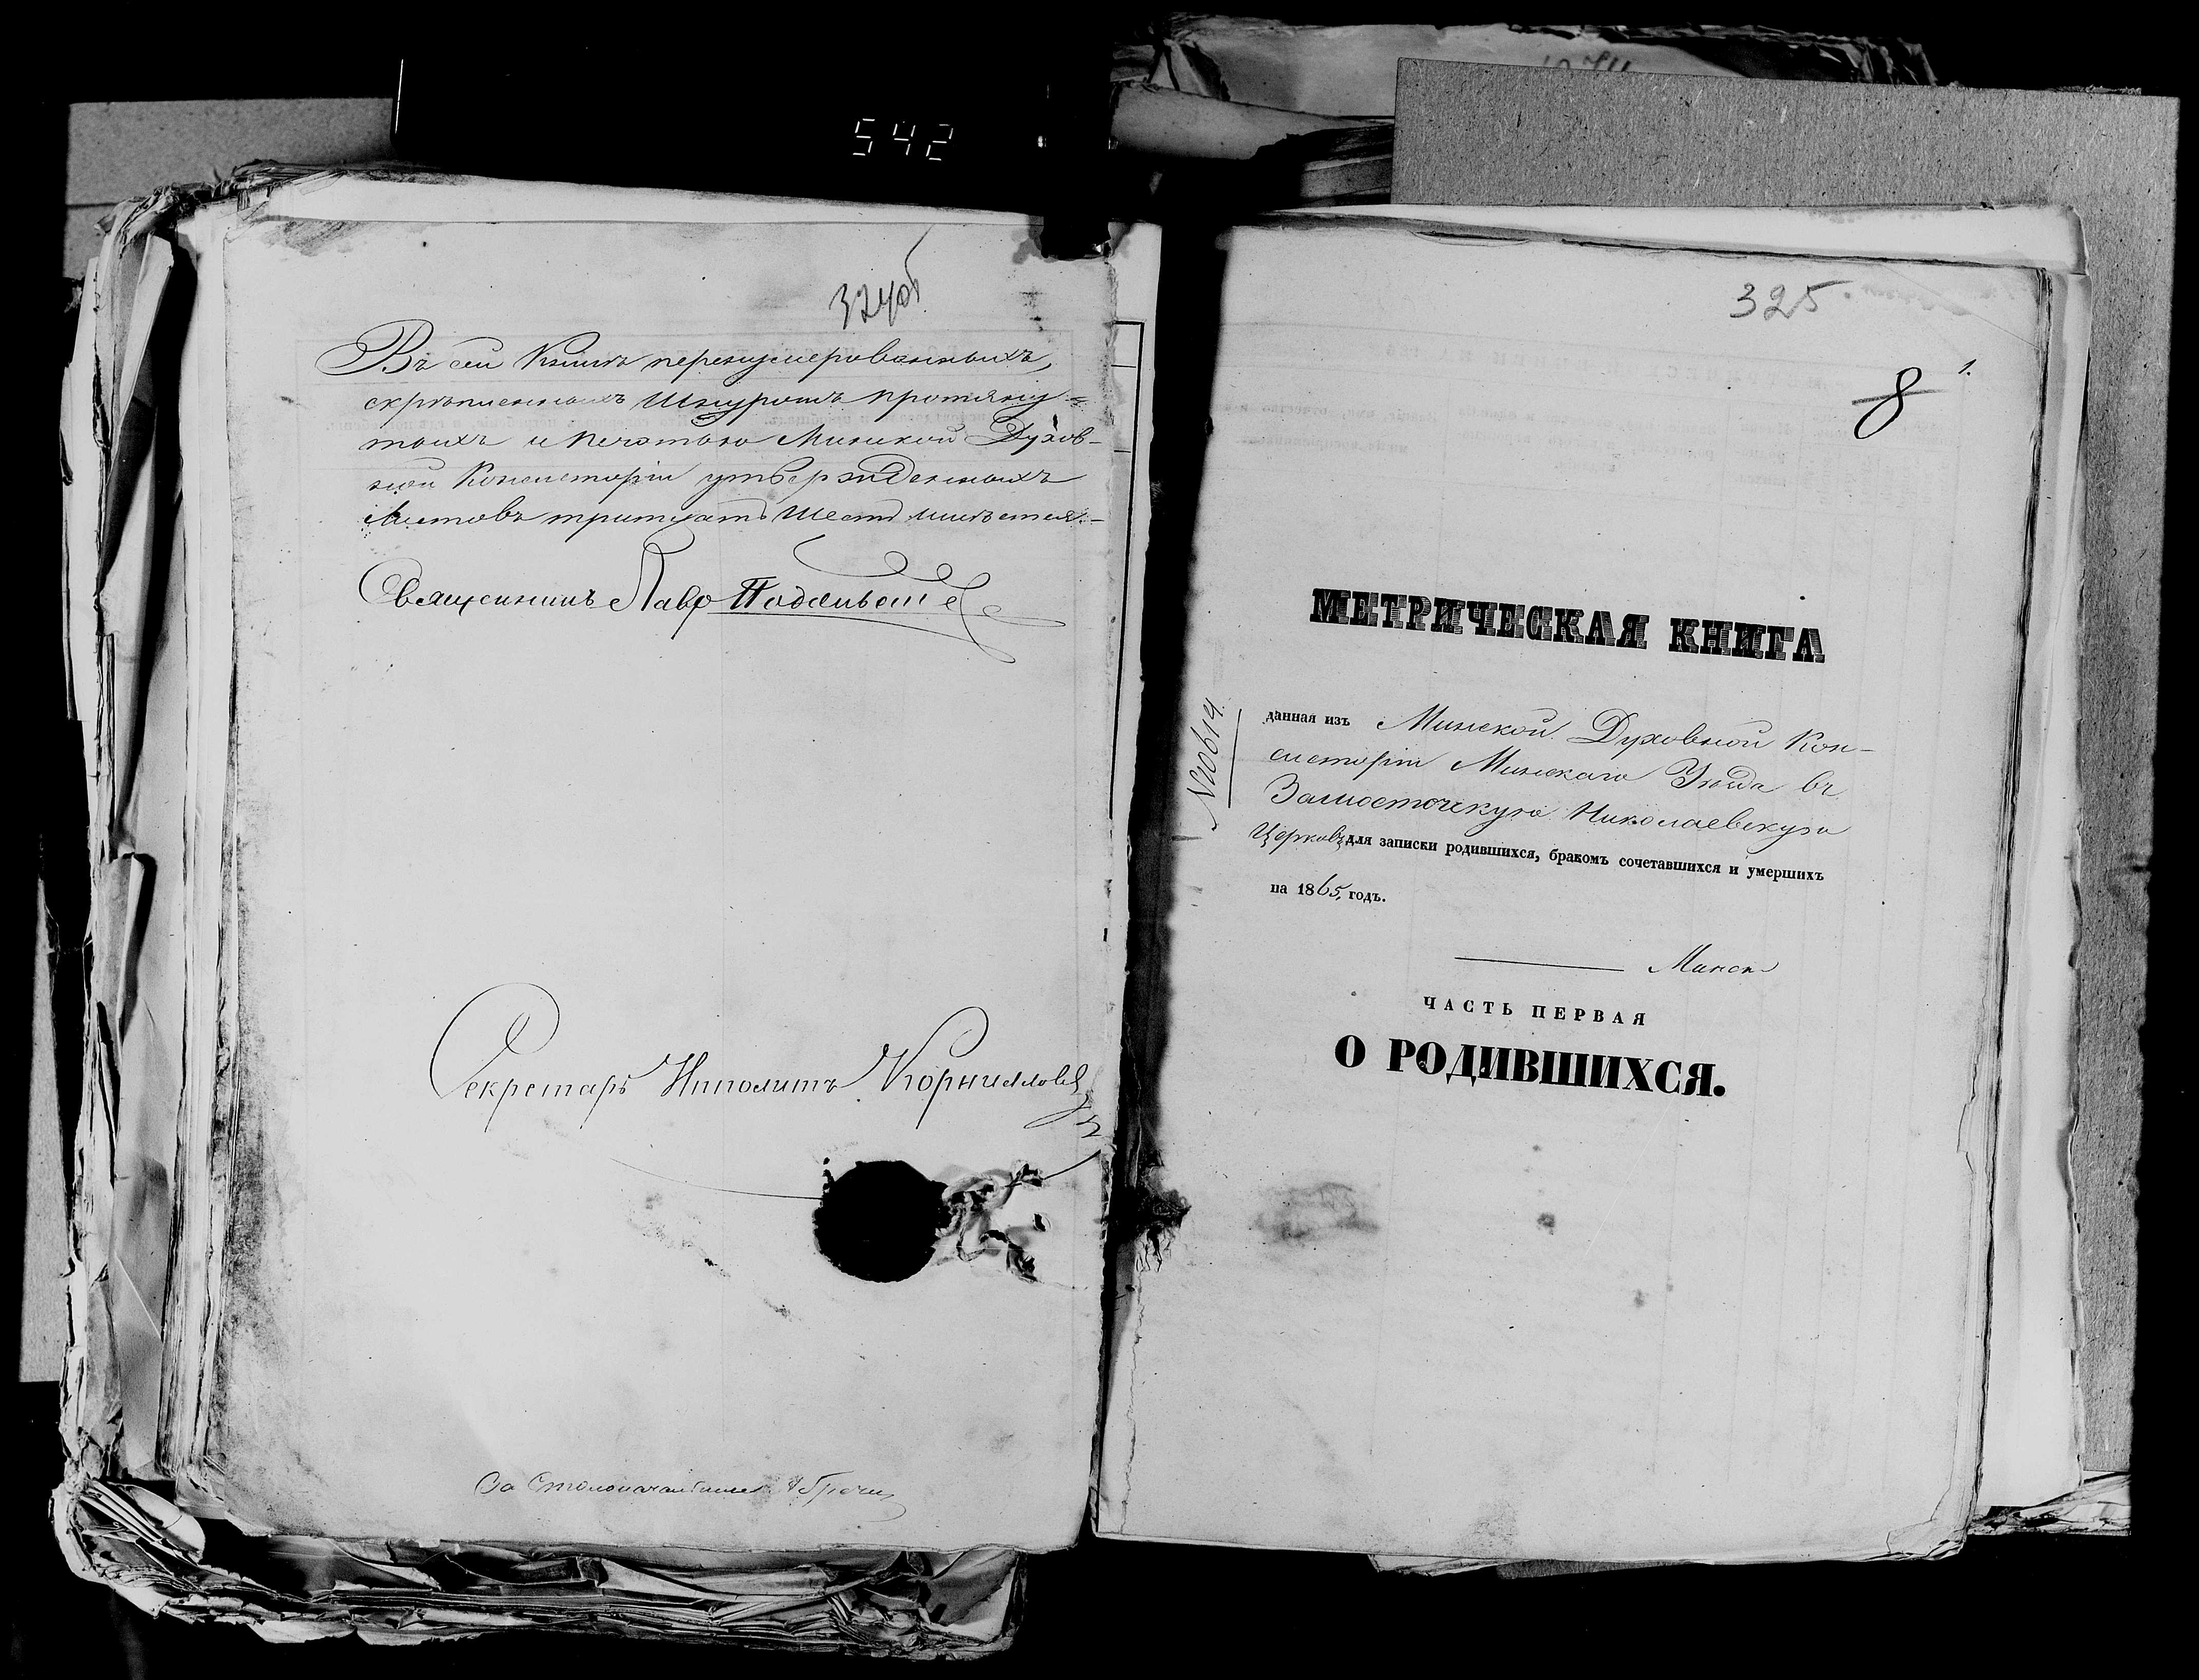 542
324об
Въ сей Книгѣ перенумерованныхъ,
скрѣпленныхъ Шнуромъ протяну=
тыхъ и печатью Минской Духов-
ной Консисторіи утвержденныхъ
листовъ тритцать шесть имѣется.-
Священникъ Лавр
Секретарь Ипполитъ Корниловъ
За Столоначальника
325.
1.
8
МЕТРИЧЕСКАЯ КНИГА
данная изъ Минской Духовной Кон-
систоріи Минскаго Уѣзда въ
Замосточскую Николаевскую
Церковь для записки родившихся, бракомъ сочетавшихся и умершихъ
на 1865, годъ.
Минск
ЧАСТЬ ПЕРВАЯ
О РОДИВШИХСЯ.